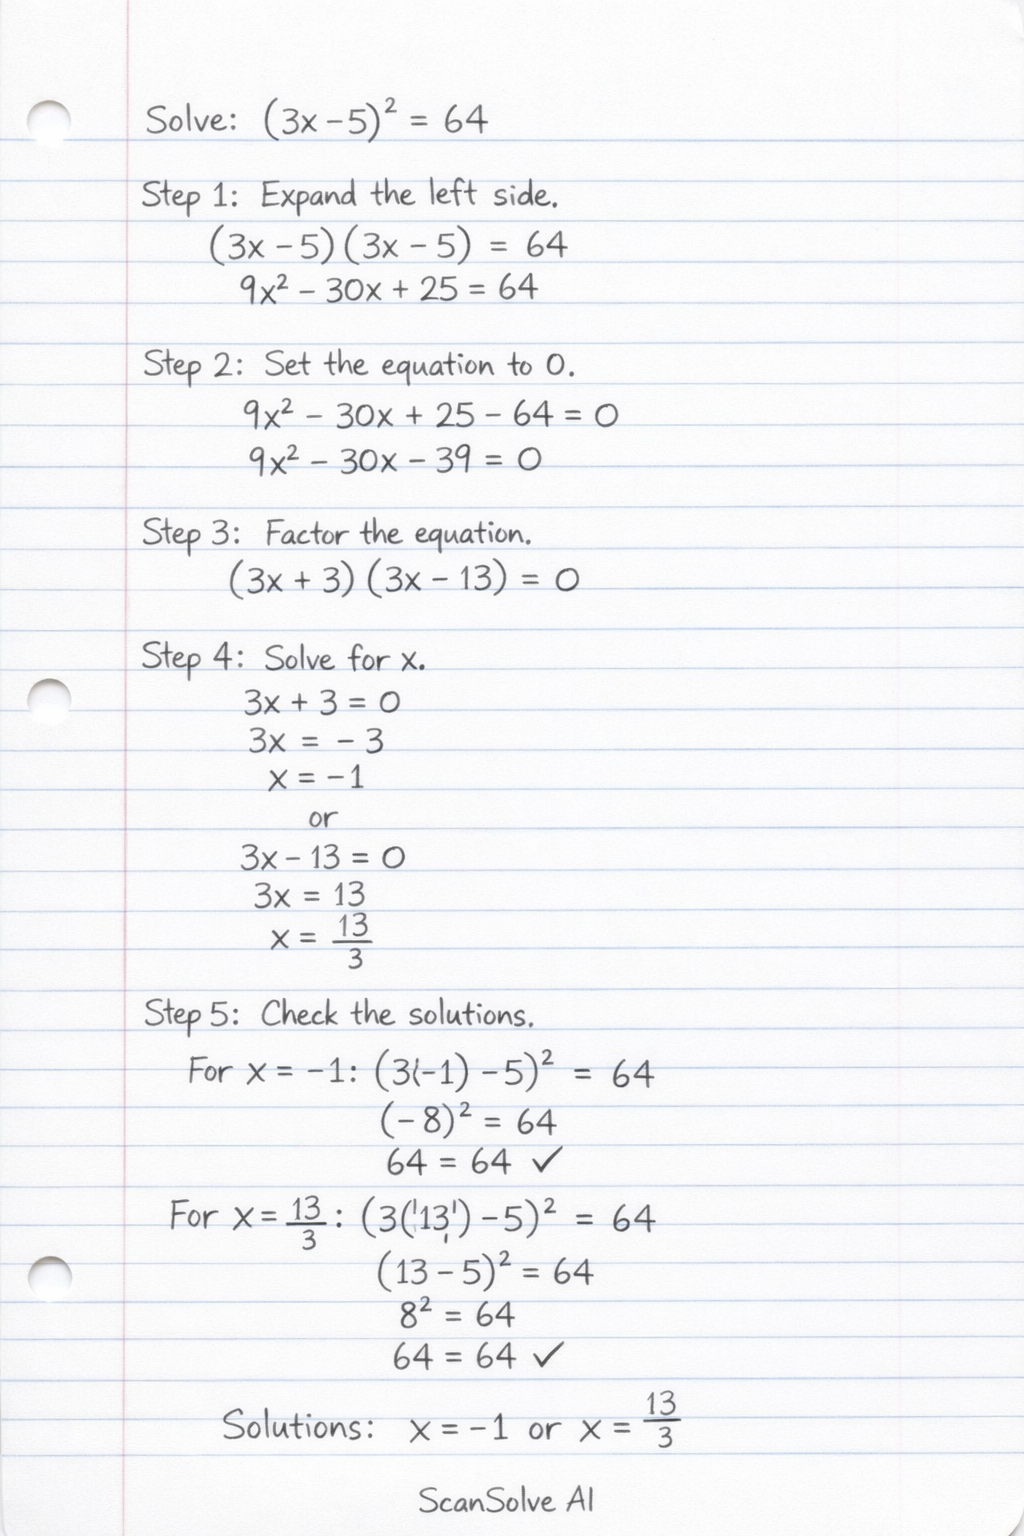 Solve: (3x - 5)² = 64
Step 1: Expand the left side.
(3x - 5)(3x - 5) = 64
9x² - 30x + 25 = 64
Step 2: Set the equation to 0.
9x² - 30x + 25 - 64 = 0
9x² - 30x - 39 = 0
Step 3: Factor the equation.
(3x + 3)(3x - 13) = 0
Step 4: Solve for x.
3x + 3 = 0
3x = -3
x = -1
or
3x - 13 = 0
3x = 13
x = 13/3
Step 5: Check the solutions.
For x = -1: (3(-1) - 5)² = 64
(-8)² = 64
64 = 64 ✓
For x = 13/3: (3(13) - 5)² = 64
(13 - 5)² = 64
8² = 64
64 = 64 ✓
Solutions: x = -1 or x = 13/3
ScanSolve AI